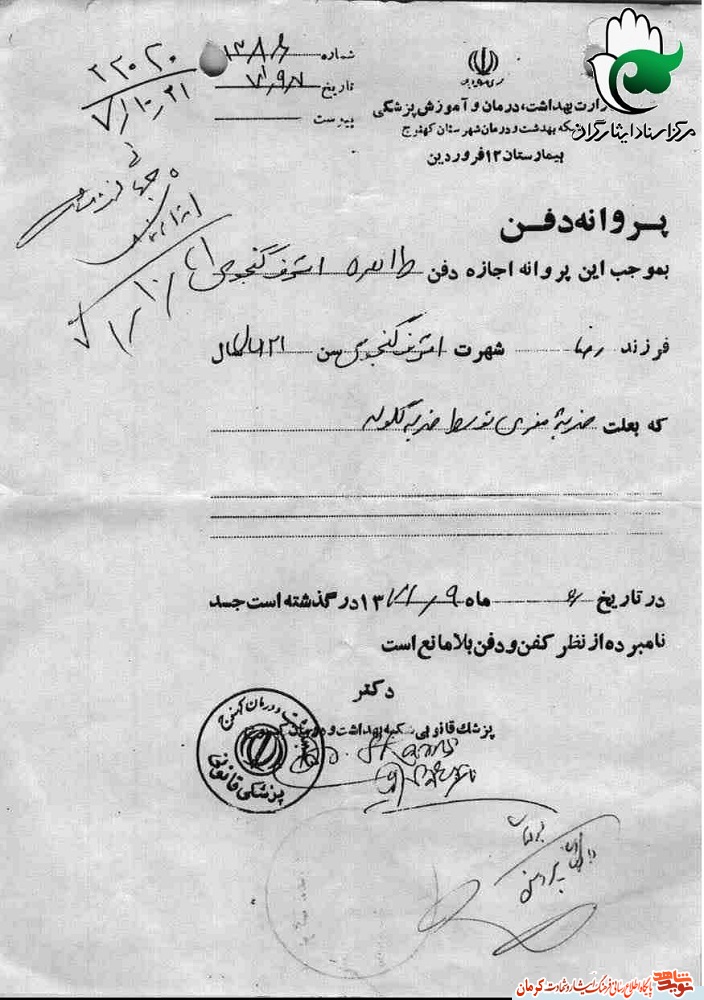 مرکز اسناد ایثارگران
شماره ۱۳۸۶
تاریخ ۷۱٫۹٫۷
پیوست
وزارت بهداشت، درمان و آموزش پزشکی
شبکه بهداشت و درمان شهرستان کهنوج
بیمارستان ۱۲ فروردین
۲۲۰۲۰
۷۱/۱۰/۲۱
پروانه دفن
بموجب این پروانه اجازه دفن طاهره اشرف گنجوی
فرزند رضا شهرت اشرف گنجوی سن ۲۱ سال
که بعلت ضربه مغزی توسط ضربه گلوله
در تاریخ ۶ ماه ۹ ۱۳۷۱ درگذشته است جسد
نامبرده از نظر کفن و دفن بلامانع است
دکتر
پزشک قانونی شبکه بهداشت و درمان کهنوج
بهداشت و درمان کهنوج
پزشکی قانونی
نوید شاهد
پایگاه اطلاع رسانی فرهنگ ایثار و شهادت کرمان